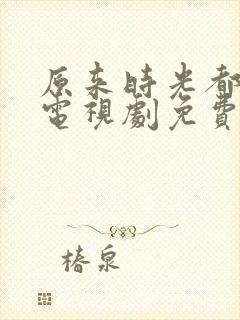 原来時光都
電視劇免費
椿泉